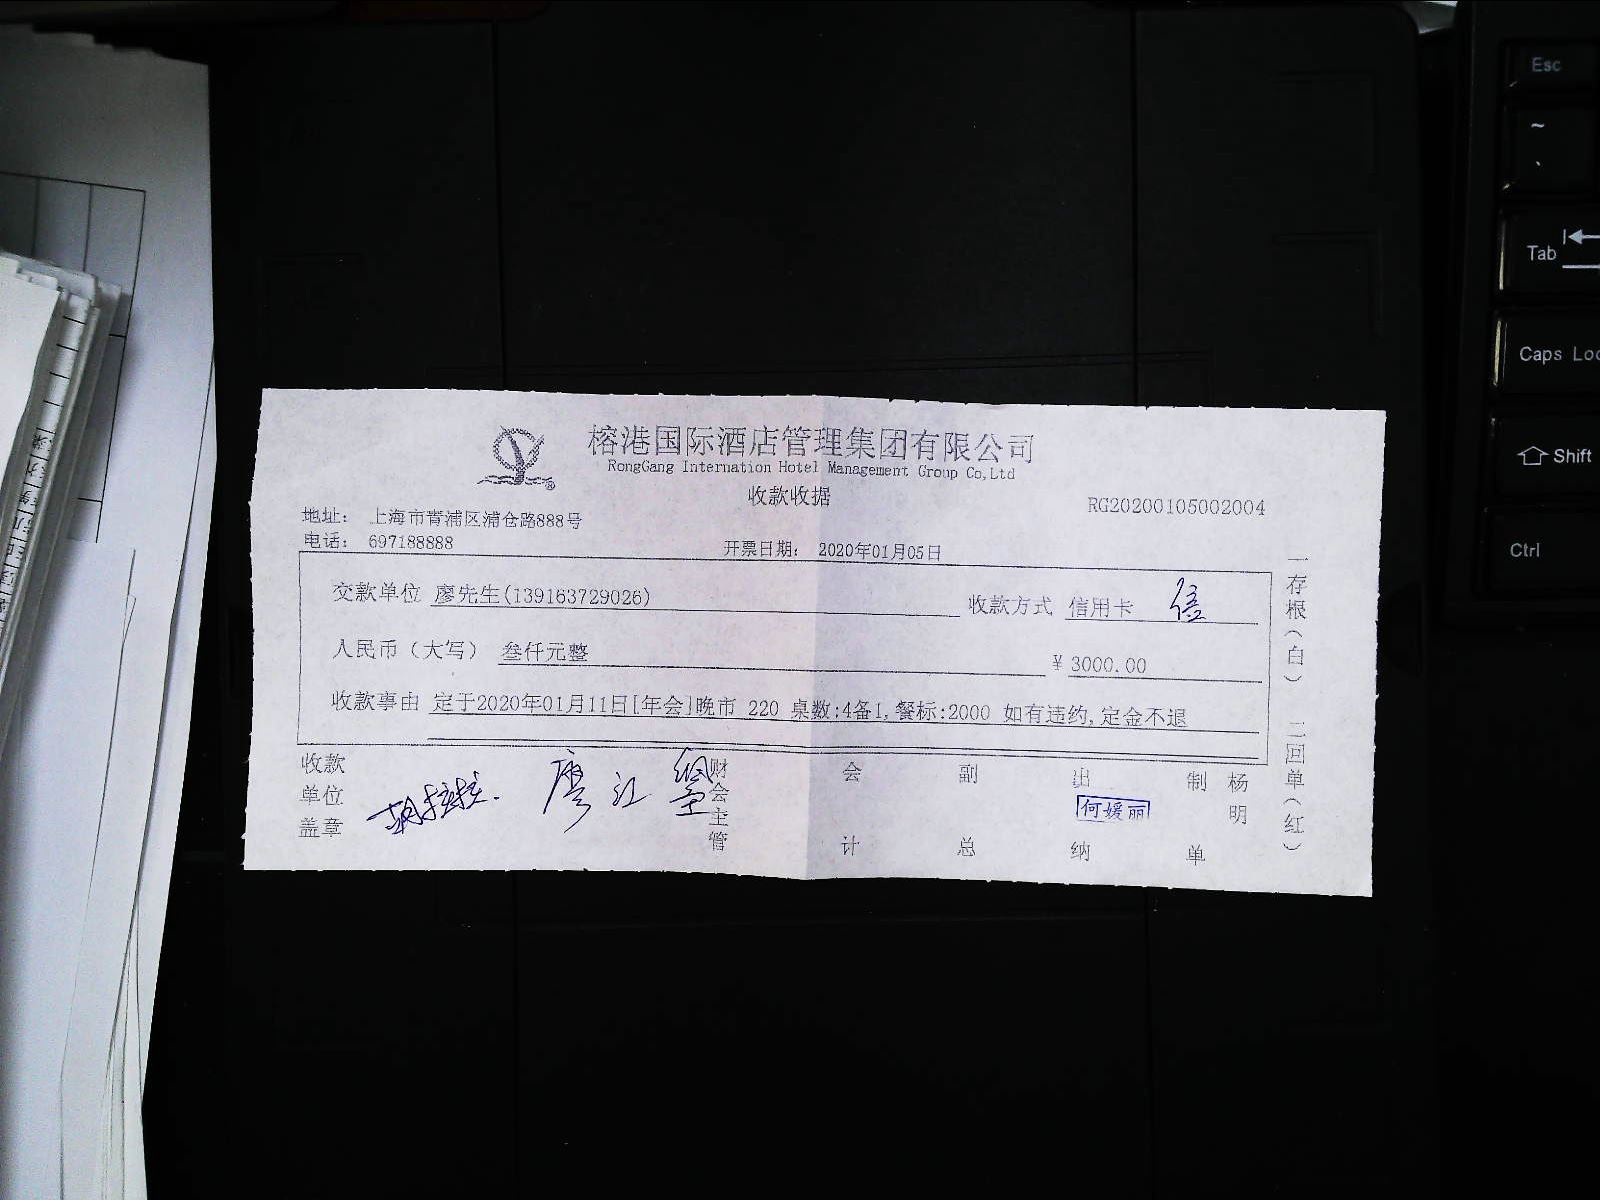 榕港国际酒店管理集团有限公司
RongGang Internation Hotel Management Group Co,Ltd
收款收据
RG20200105002004
地址: 上海市青浦区浦仓路888号
电话: 697188888
开票日期: 2020年01月05日
交款单位 廖先生(139163729026) 收款方式 信用卡 信
人民币（大写） 叁仟元整 ¥ 3000.00
收款事由 定于2020年01月11日[年会]晚市 220 桌数:4备1,餐标:2000 如有违约,定金不退
收款单位盖章
财会主管
会计
副总
出纳 何媛丽
制单 杨明
一存根（白） 二回单（红）
Esc
~
Tab
Caps Loc
Shift
Ctrl